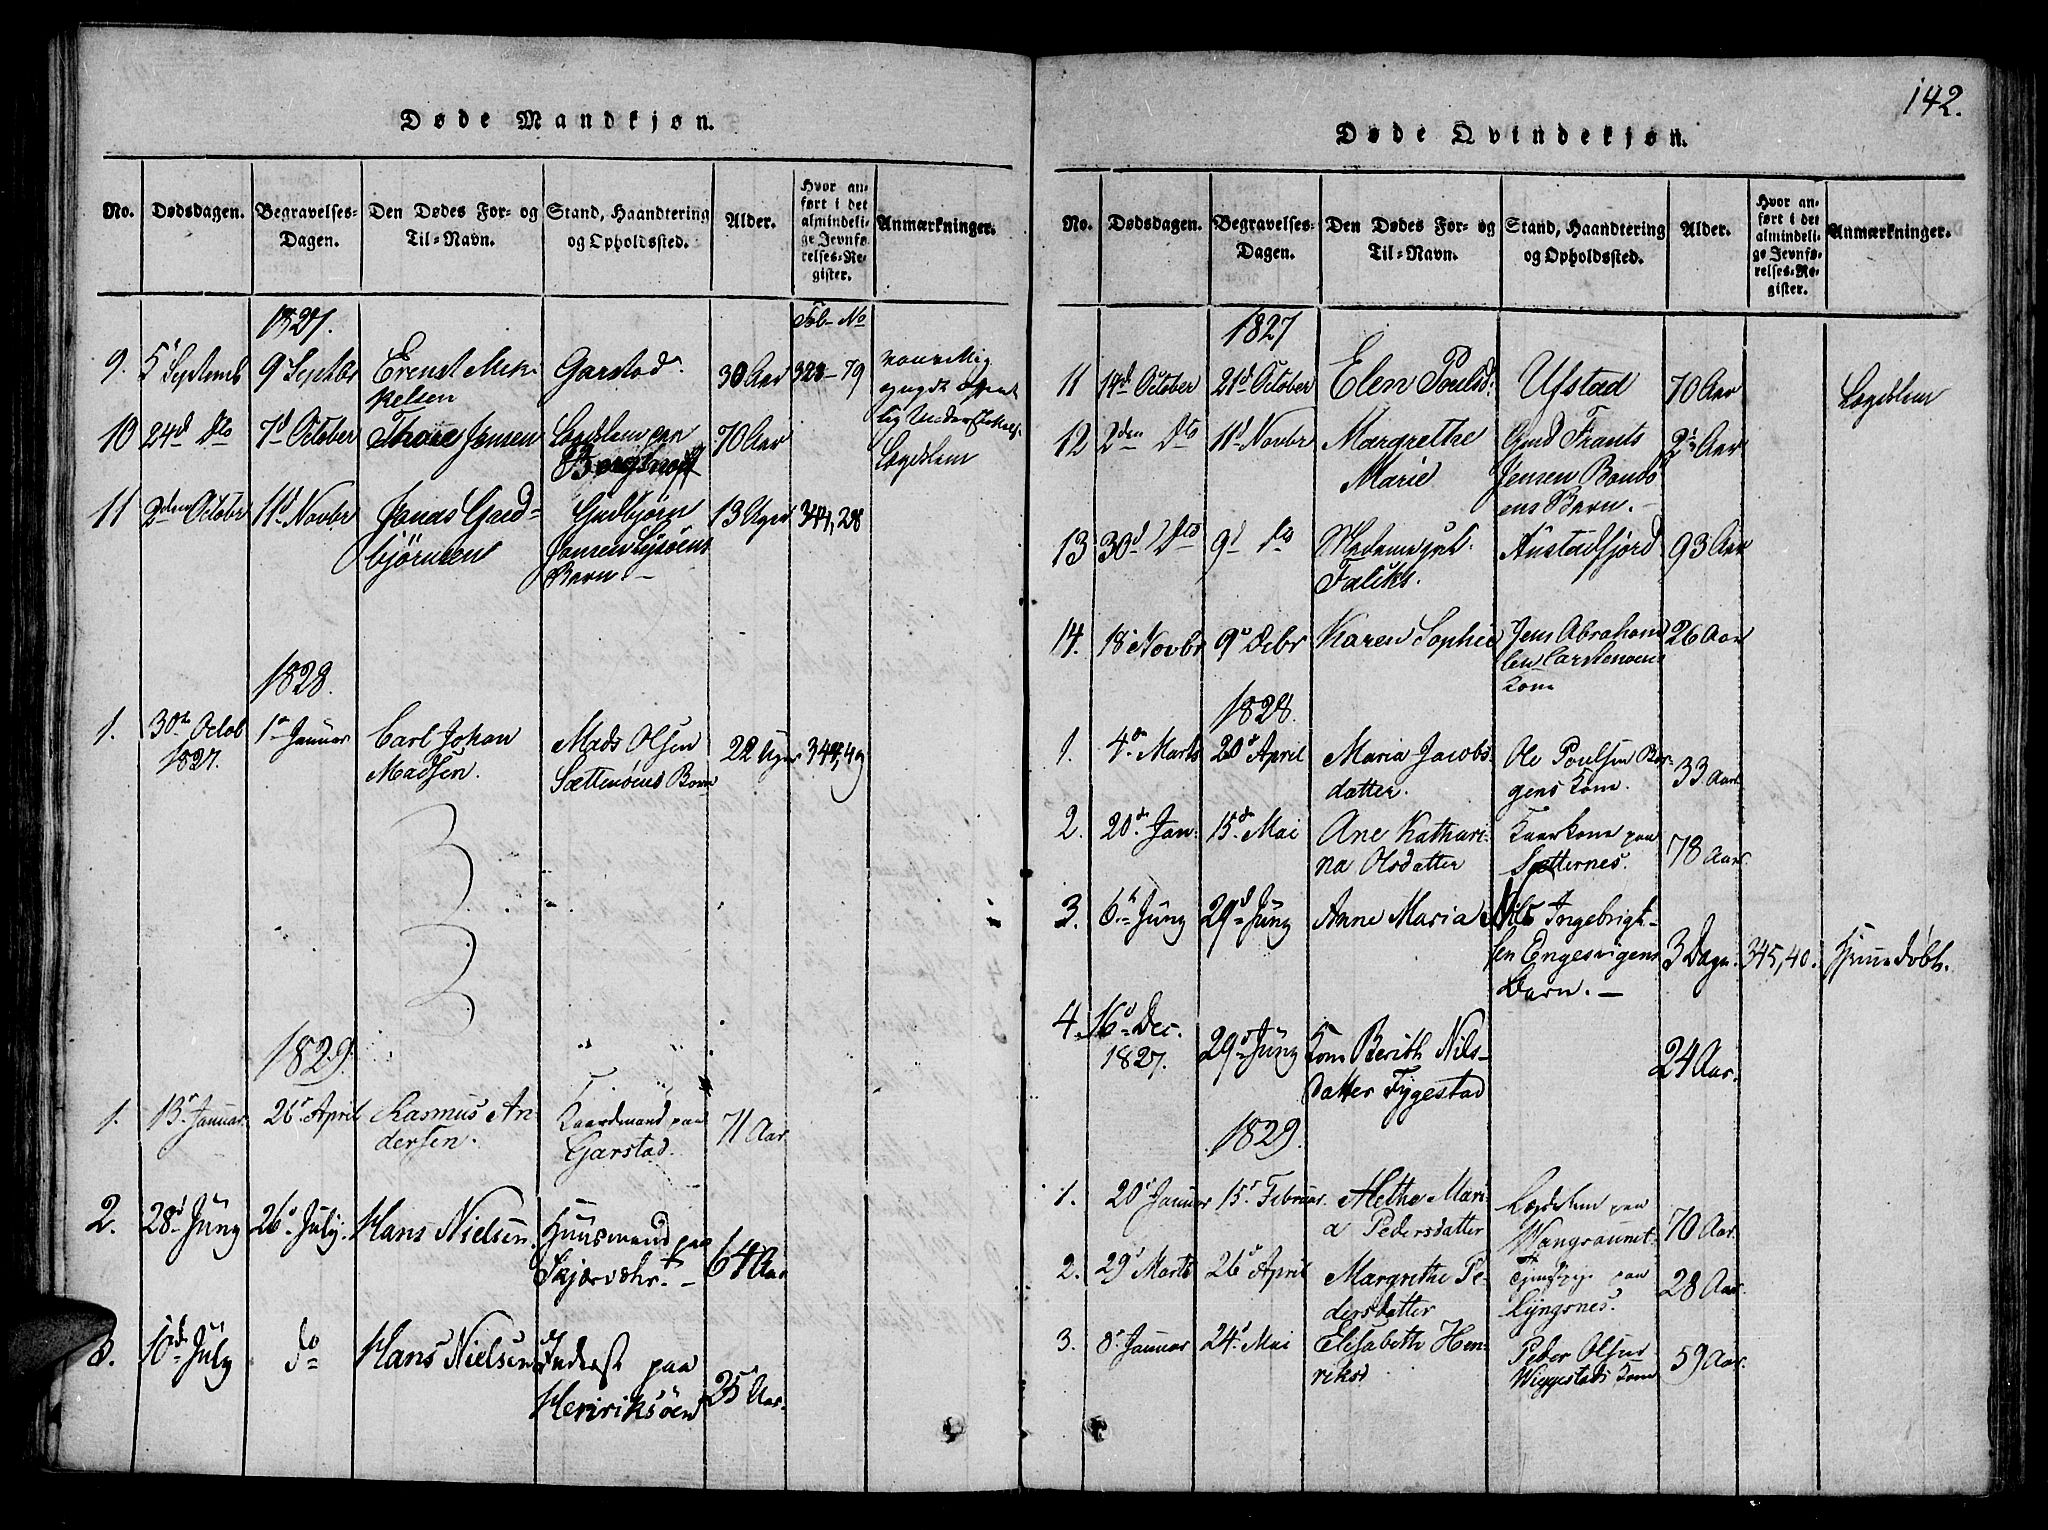 Døde Mandkjøn.
No.
Dødsdagen.
Begravelses-
Dagen.
Den Dødes For- og
Til-Navn.
Stand, Haandtering
og Opholdssted.
Alder.
Hvor an-
ført i det
almindeli-
ge Jevnfø-
relses-Re-
gister.
Anmærkninger.
1827.
Fol- No
9. 5 Septemb 9 Septbr Erenst Mik-
kelsen
Garstad. 30 Aar 328-79
10 24d Do 7d October Thore Jensen Lægdslem paa
70 Aar
Lægdslem
11 2den Octobr 11d Novbr Jonas Gud-
bjørnsen
Gudbjørn
Jansen
Barn. 13 Uger 344, 28
1828.
1. 30te Octob
1827.
1te Januar Carl Johan
Madsen.
Mads Olsen
Sætterøens Barn
22 Uger 344, 49
1829.
1. 13 Januar 26 April Rasmus An-
dersen.
Kaardmand paa
Garstad.
71 Aar.
2. 28d Juny 26d July. Hans Nielsen. Huusmand paa
Skjærvær.
64 Aar
3. 10d July do Hans Nielsen Inderst paa
Henriksöen
25 Aar.
142.
Døde Qvindekjøn.
No.
Dødsdagen.
Begravelses-
Dagen.
Den Dødes For- og
Til-Navn.
Stand, Haandtering
og Opholdssted.
Alder.
Hvor an-
ført i det
almindeli-
ge Jevnfø-
relses-Re-
gister.
Anmærkninger.
1827
11 14d October 21d October Elen Poulsd. Ufstad 70 Aar Lægdslem
12 2den Do 11d Novbr Margrethe
Marie
Frants
Jensen
ens Barn.
2½ Aar
13 30d Do 9d do
Faliks.
Austadfjord 93 Aar
14. 18 Novbr 9d Debr Karen Sophie Jens Abraham
sen
Kone
26 Aar
1828.
1. 4de Marts 20d April Maria Jacobs
datter.
Ole Poulsen Bor-
gens Kone.
33 Aar
2. 20de Jan. 15de Mai Ane Kathari-
na Olsdatter
Kaarkone paa
Sætternes.
78 Aar
3. 6te Juny 29d Juny Anne Maria Nils Ingebrigt-
sen Engesvigens
Barn.
3 Dage. 345, 40. Hjemmedøbt.
4. 16d Dec.
1827.
29d Juny Kone Berith Nils-
datter Fygestad
24 Aar.
1829.
1. 20d Januar 15d Februar Methe Mari-
a Pedersdatter
Lægdslem paa
70 Aar.
2. 29d Marts 26d April Margrethe Pe-
dersdatter
paa
Lyngsnes.
28 Aar.
3. 8d Januar 24d Mai Elisabeth Hen-
riksd
Peder Olsen
Wiggestads Kone
59 Aar.